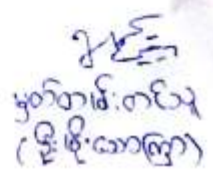 မှတ်တမ်းတင်သူ
(မိုးမိုးသော်ကြာ)